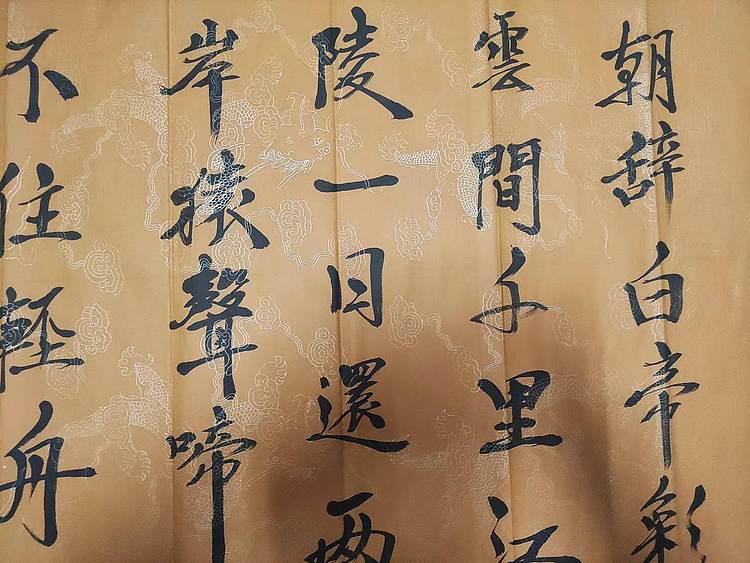 朝辞白帝彩
雲間千里江
陵一日還两
岸猿聲啼
不住輕舟